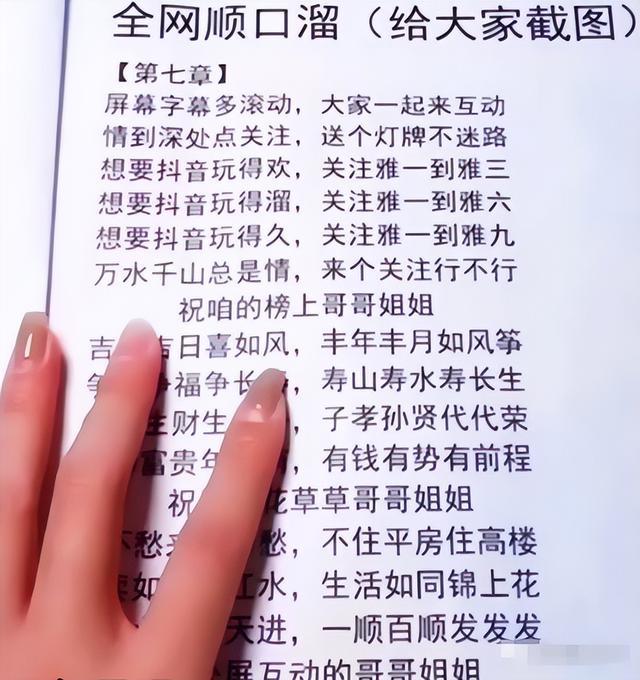 全网顺口溜（给大家截图）
【第七章】
屏幕字幕多滚动，大家一起来互动
情到深处点关注，送个灯牌不迷路
想要抖音玩得欢，关注雅一到雅三
想要抖音玩得溜，关注雅一到雅六
想要抖音玩得久，关注雅一到雅九
万水千山总是情，来个关注行不行
祝咱的榜上哥哥姐姐
吉 吉日喜如风，丰年丰月如风筝
争 争福争长 ，寿山寿水寿长生
生财生 ，子孝孙贤代代荣
富贵年 ，有钱有势有前程
祝 花草草哥哥姐姐
不愁 愁，不住平房住高楼
如 江水，生活如同锦上花
天进，一顺百顺发发发
屏互动的哥哥姐姐